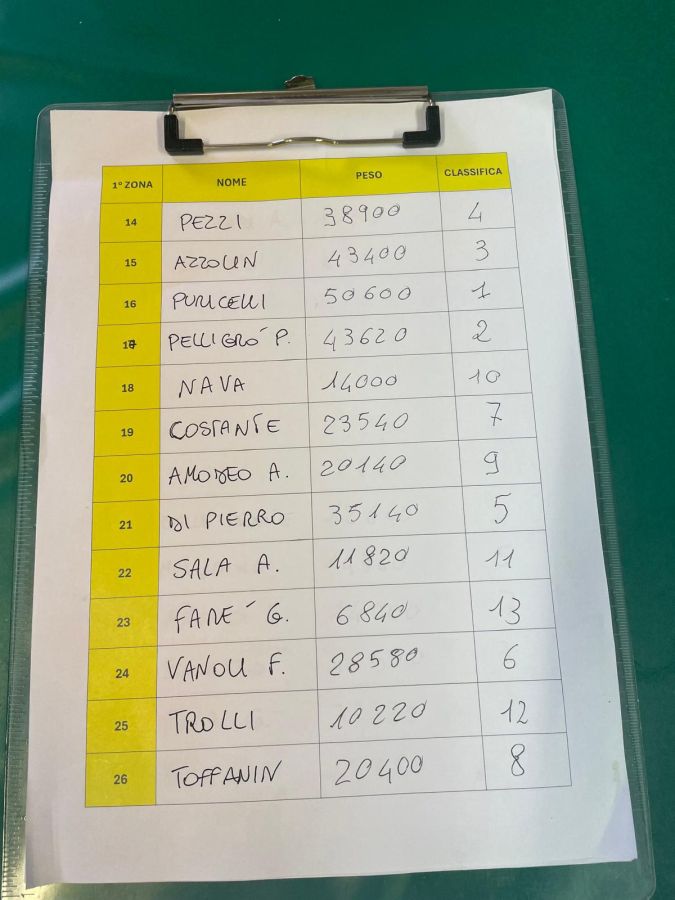 1° ZONA NOME PESO CLASSIFICA
14 PEZZI 38900 4
15 AZZOLIN 43400 3
16 PURICELLI 50600 1
17 PELLIGRÓ P. 43620 2
18 NAVA 14000 10
19 COSTANTE 23540 7
20 AMODEO A. 20140 9
21 DI PIERRO 35140 5
22 SALA A. 11820 11
23 FARÉ G. 6840 13
24 VANOLI F. 28580 6
25 TROLLI 10220 12
26 TOFFANIN 20400 8